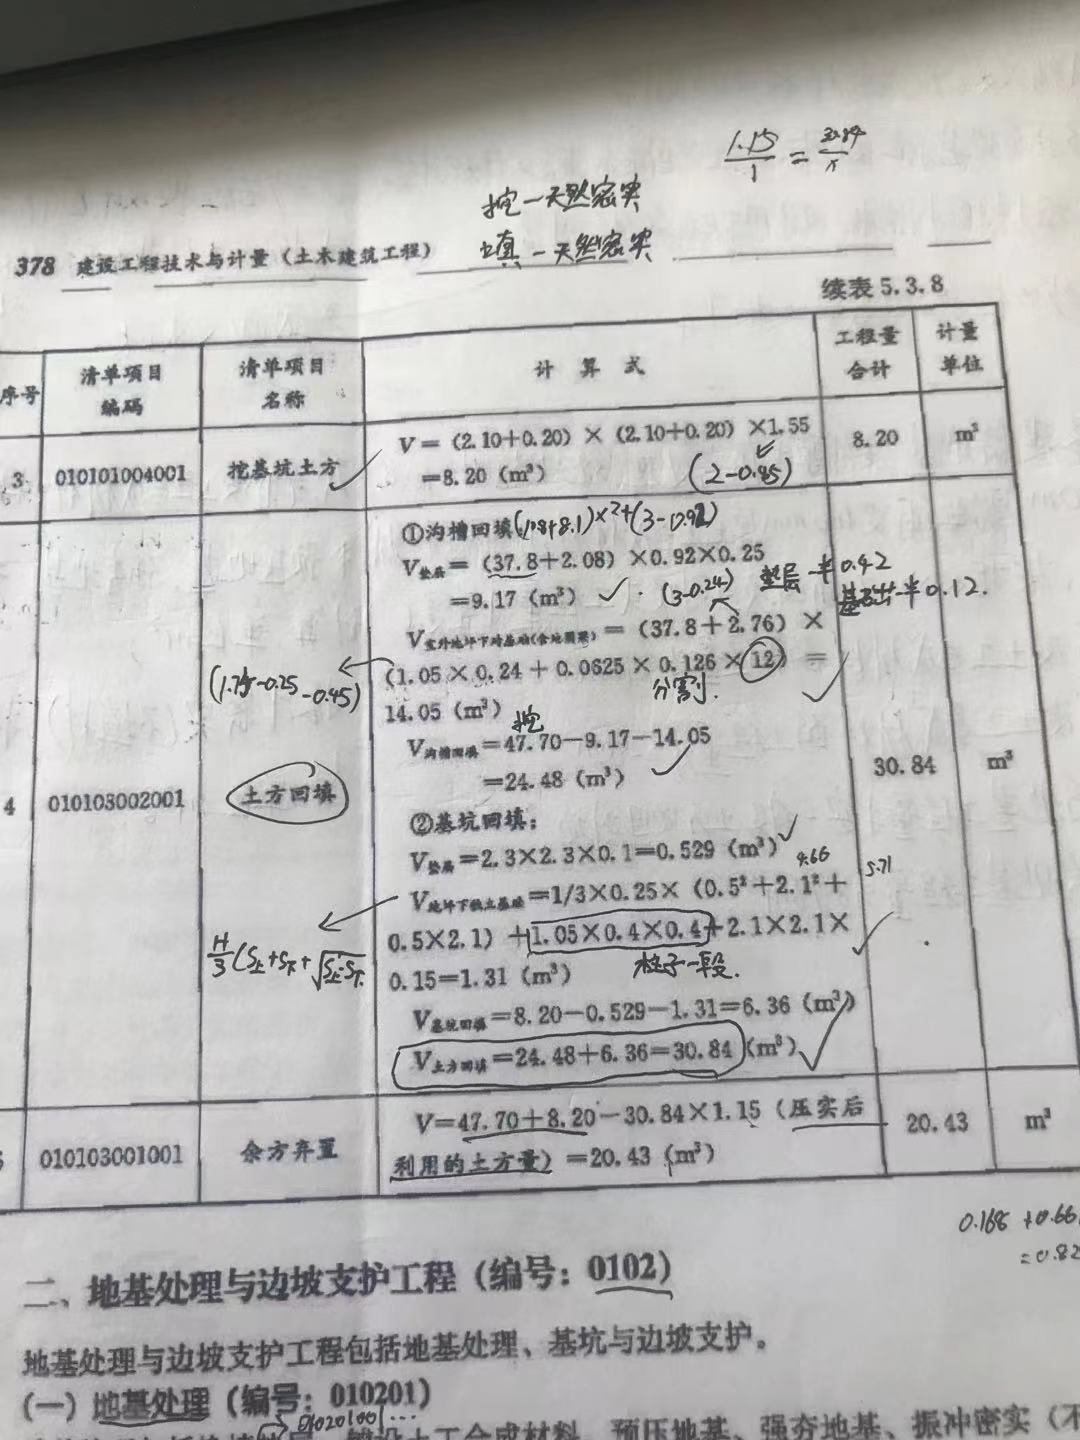 1.15/1 = 30.84/x
挖一天然密实
填一天然密实
378 建设工程技术与计量（土木建筑工程）
续表 5.3.8
序号
清单项目编码
清单项目名称
计 算 式
工程量合计
计量单位
3
010101004001
挖基坑土方
V＝（2.10+0.20）×（2.10+0.20）×1.55
＝8.20（m³）
(2-0.45)
8.20
m³
4
010103002001
土方回填
①沟槽回填：
V垫层＝（37.8+2.08）×0.92×0.25
＝9.17（m³）
(3-0.24)
垫层一半0.42
基础一半0.12.
V室外地坪下砖基础(含地圈梁)＝（37.8＋2.76）×
（1.05×0.24＋0.0625×0.126×12）＝
14.05（m³）
分割.
挖
V沟槽回填＝47.70－9.17－14.05
＝24.48（m³）
②基坑回填：
V垫层＝2.3×2.3×0.1＝0.529（m³）
4.66
5.71
V地坪下独立基础＝1/3×0.25×（0.5²＋2.1²＋
0.5×2.1）＋1.05×0.4×0.4＋2.1×2.1×
0.15＝1.31（m³）
柱子一段.
H/3(S上+S下+√S上·S下
V基坑回填＝8.20－0.529－1.31＝6.36（m³）
V土方回填＝24.48＋6.36＝30.84（m³）
30.84
m³
010103001001
余方弃置
V＝47.70＋8.20－30.84×1.15（压实后
利用的土方量）＝20.43（m³）
20.43
m³
0.168 +0.66
=0.82
二、地基处理与边坡支护工程（编号：0102）
地基处理与边坡支护工程包括地基处理、基坑与边坡支护。
（一）地基处理（编号：010201）
010201001…
铺设土工合成材料、预压地基、强夯地基、振冲密实（不